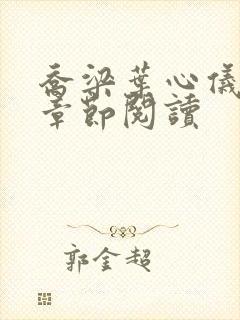 喬梁葉心儀
章節閱讀
郭金超